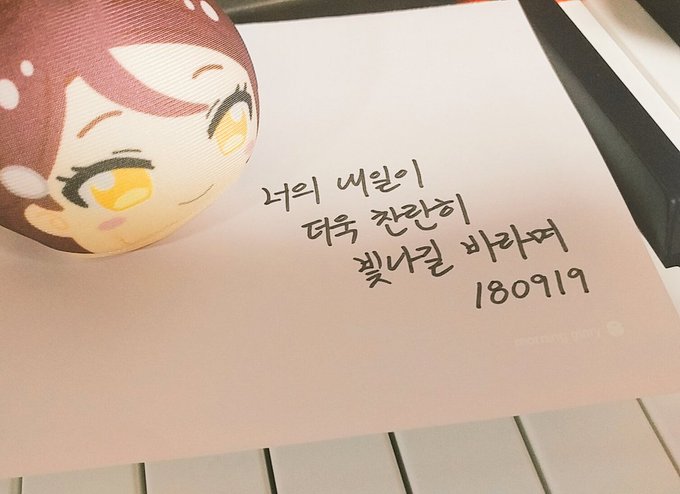 너의 내일이
더욱 찬란히
빛나길 바라며
180919
morning glory